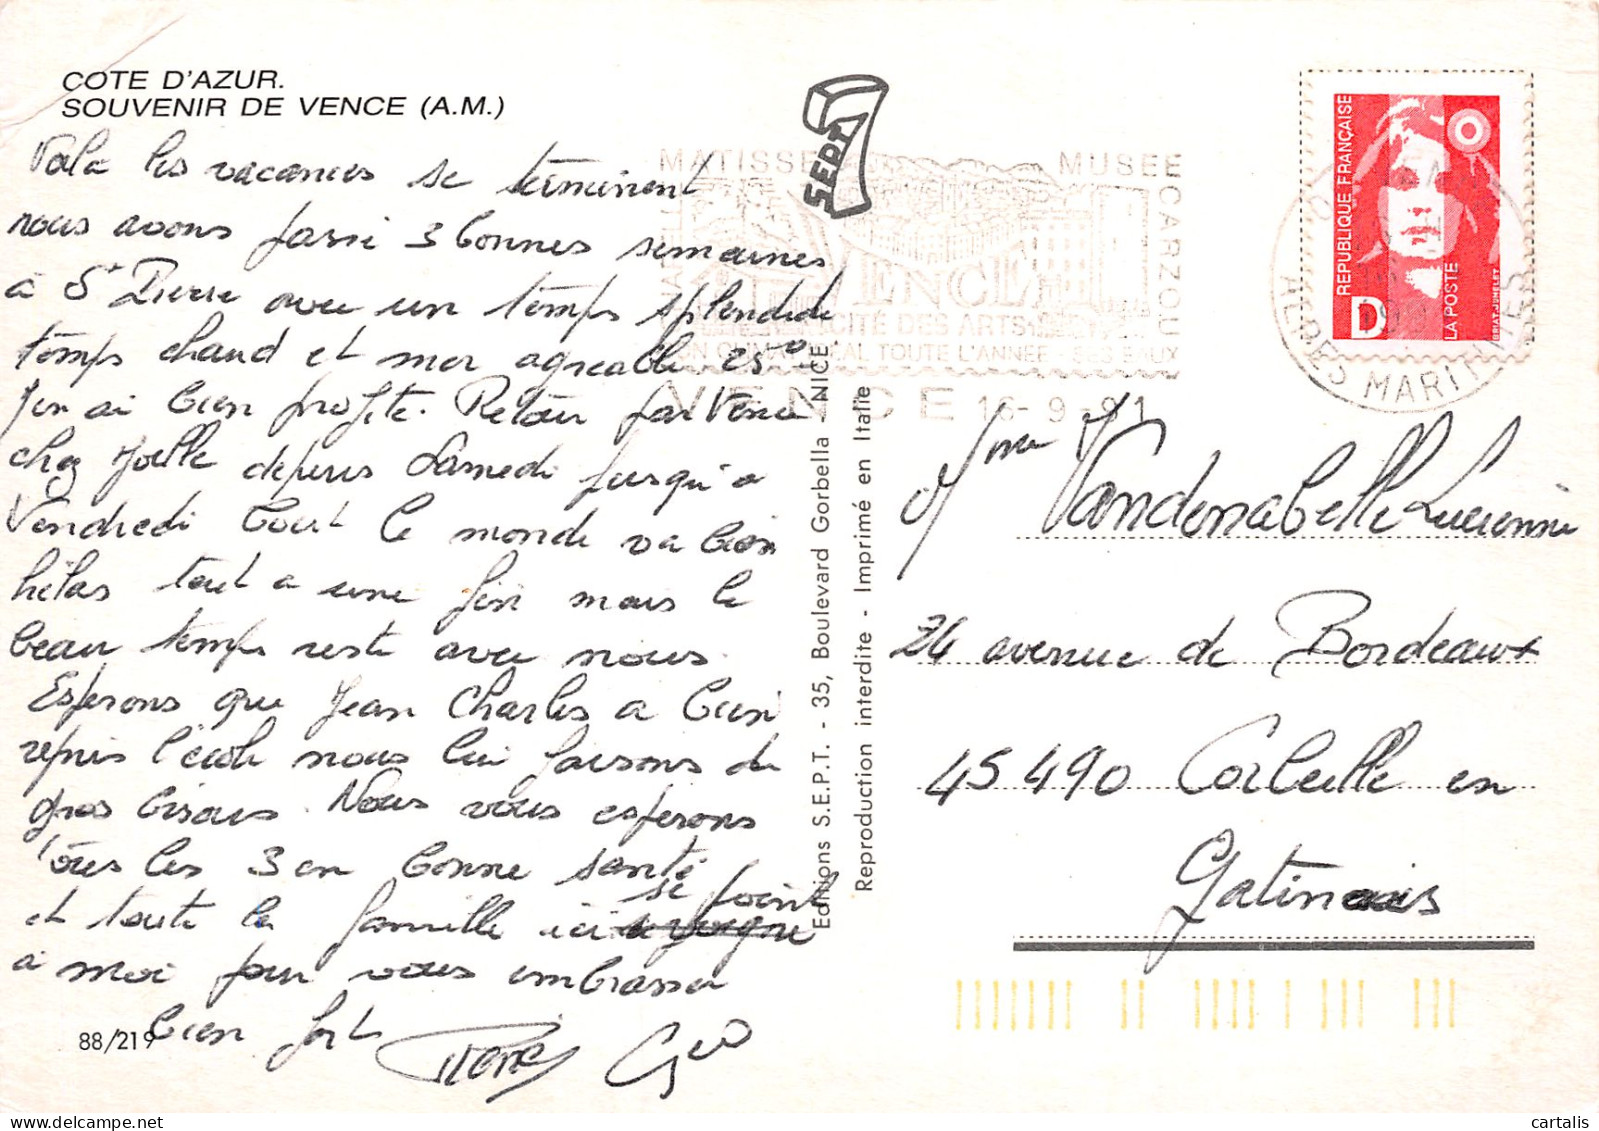 COTE D'AZUR.
SOUVENIR DE VENCE (A.M.)
Voila les vacances se terminent
nous avons passé 3 bonnes semaines
à St Pierre avec un temps splendide
temps chaud et mer agreable
J'en ai bien profité. Retour par Vence
chez Joelle depuis Samedi jusqu'a
Vendredi tout le monde va bien
hélas tout a une fin mais le
beau temps reste avec nous.
Esperons que Jean Charles a bien
repris l'école nous lui faisons de
gros bisous. Nous vous esperons
tous les 3 en bonne santé
et toute la famille ici se joint
à moi pour vous embrasser
bien fort
88/219
SEPT
Editions S.E.P.T. - 35, Boulevard Gorbella - NICE
Reproduction interdite - Imprimé en Italie
MATISSE MUSEE CARZOU
VENCE
CITE DES ARTS
TOUTE L'ANNEE
VENCE 16-9-91
REPUBLIQUE FRANÇAISE
D
LA POSTE
BRIAT.JUMELET
ALPES MARITIMES
Mme Vandenabelle Lucienne
24 avenue de Bordeaux
45490 Corbeille en
Gatinais
cartalis